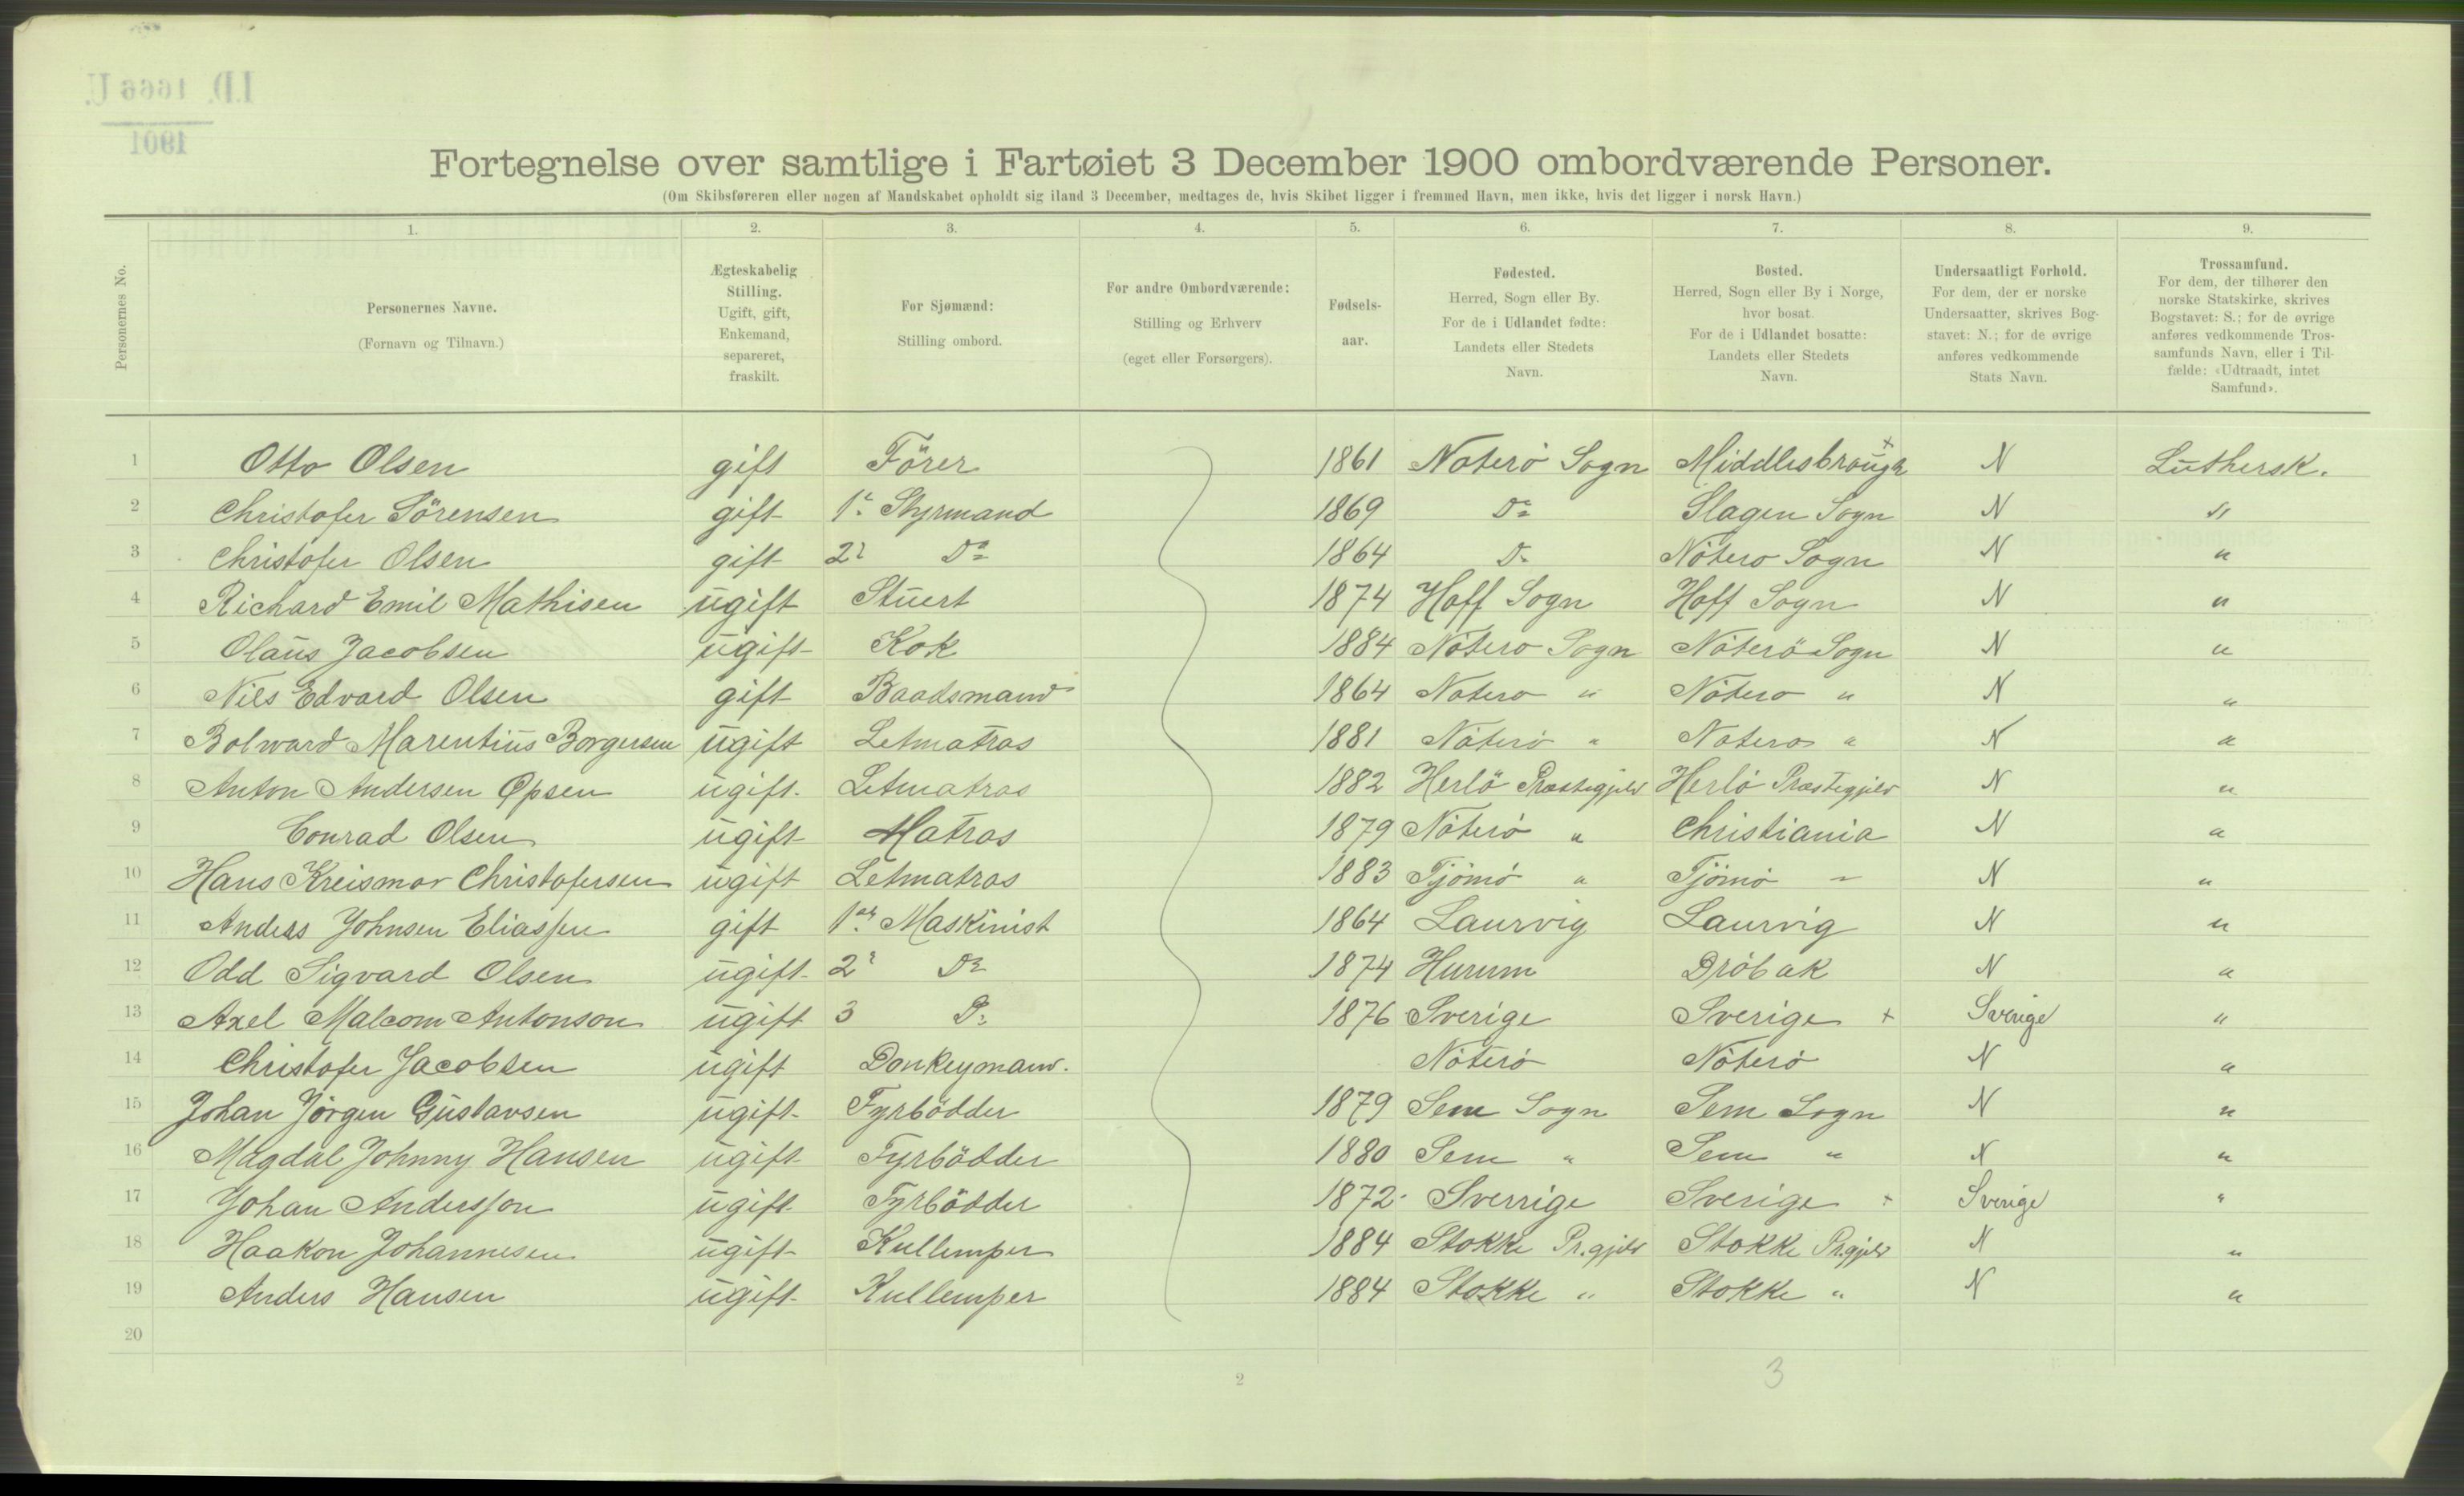 I.D. 1666 U.
1901
Fortegnelse over samtlige i Fartøiet 3 December 1900 ombordværende Personer.
(Om Skibsføreren eller nogen af Mandskabet opholdt sig iland 3 December, medtages de, hvis Skibet ligger i fremmed Havn, men ikke, hvis det ligger i norsk Havn.)
Personernes No.
1. 2. 3. 4. 5. 6. 7. 8. 9.
Personernes Navne.
(Fornavn og Tilnavn.)
Ægteskabelig
Stilling.
Ugift, gift,
Enkemand,
separeret,
fraskilt.
For Sjømænd:
Stilling ombord.
For andre Ombordværende:
Stilling og Erhverv
(eget eller Forsørgers).
Fødsels-
aar.
Fødested.
Herred, Sogn eller By.
For de i Udlandet fødte:
Landets eller Stedets
Navn.
Bosted.
Herred, Sogn eller By i Norge,
hvor bosat.
For de i Udlandet bosatte:
Landets eller Stedets
Navn.
Undersaatligt Forhold.
For dem, der er norske
Undersaatter, skrives Bog-
stavet: N.; for de øvrige
anføres vedkommende
Stats Navn.
Trossamfund.
For dem, der tilhører den
norske Statskirke, skrives
Bogstavet: S.; for de øvrige
anføres vedkommende Tros-
samfunds Navn, eller i Til-
fælde: «Udtraadt, intet
Samfund».
1 Otto Olsen gift Förer 1861 Noterö Sogn Middlesbrough + N Luthersk.
2 Christofer Sörensen gift 1e Styrmand 1869 Do Slagen Sogn N "
3 Christofer Olsen gift 2e Do 1864 Do Nötero Sogn N "
4 Richard Emil Mathisen ugift Stuert 1874 Hoff Sogn Hoff Sogn N "
5 Olaus Jacobsen ugift Kok 1884 Nötero Sogn Nöterö Sogn N "
6 Nils Edvard Olsen gift Baadsmand 1864 Notero " Nötero " N "
7 Bolward Marentius Borgersen ugift Letmatros 1881 Nöterö " Notero " N "
8 Anton Andersen Opsen ugift Letmatros 1882 Herlö Præstegjeld Herlö Præstegjeld N "
9 Conrad Olsen ugift Matros 1879 Nöterö " Christiania N "
10 Hans Kreismar Christofersen ugift Letmatros 1883 Tjömö " Tjömö " N "
11 Anders Johnsen Eliassen gift 1ste Maskinist 1864 Laurvig Laurvig N "
12 Odd Sigvard Olsen ugift 2e Do 1874 Hurum Dröbak N "
13 Axel Malcom Antonson ugift 3 Do 1876 Sverige Sverige + Sverige "
14 Christofer Jacobsen ugift Donkeymand. Nöterö Nöterö N "
15 Johan Jörgen Gustavsen ugift Fyrbödder 1879 Sem Sogn Sem Sogn N "
16 Magdal Johnny Hansen ugift Fyrbödder 1880 Sem " Sem " N "
17 Johan Andersson ugift Fyrbödder 1872 Sverrige Sverige + Sverige "
18 Haakon Johannesen ugift Kullemper 1884 Stokke Pr.gjeld Stokke Pr.gjeld N "
19 Anders Hansen ugift Kullemper 1884 Stokke " Stokke " N "
20
2
3